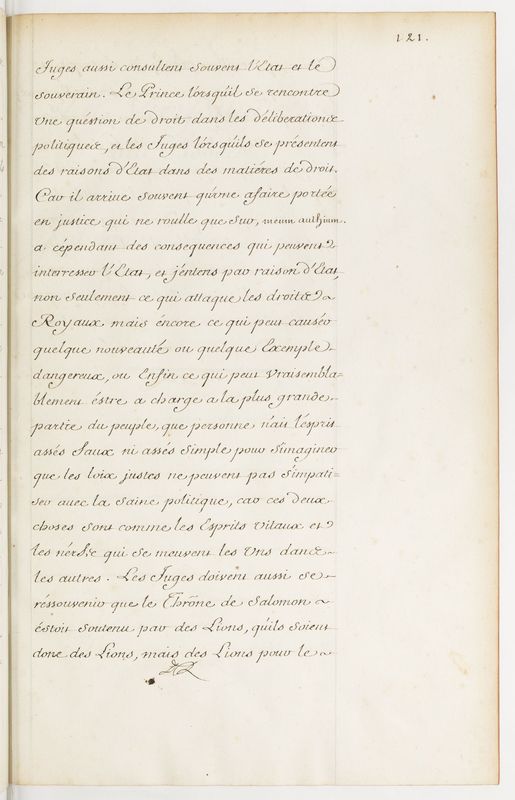 121.
Juges aussi consultent souvent l'Etat et le
souverain. Le Prince lorsquil se rencontre
Vne quéstion de droit dans les déliberations
politiques, et les Juges lórsquils se présentent
des raisons d'Etat dans des matiéres de droit.
Car il arriue souvent qu'vne afaire portée
en justice qui ne roulle que sur, meum authum.
a cépendant des consequences qui peuvent
interresser l'Etat, et j'entens par raison d'Etat,
non seulement ce qui attaque les droits
Royaux mais éncore ce qui peut causér
quelque nouveauté ou quelque Exemple
dangereux, ou Enfin ce qui peut Vraisembla=
blement éstre a charge a la plus grande
partie du peuple, que personne n'ait l'ésprit
assés faux ni assés simple pour s'imaginer
que les loix justes ne peuvent pas s'impati=
ser auec la saine politique, car ces deux
choses sont comme les Esprits vitaux et
les nérfs qui se meuvent les Vns dans
les autres. Les Juges doivent aussi se
réssouvenir que le Thrône de Salomon
éstoit soutenu par des Lions, qu'ils soient
donc des Lions, mais des Lions pour le